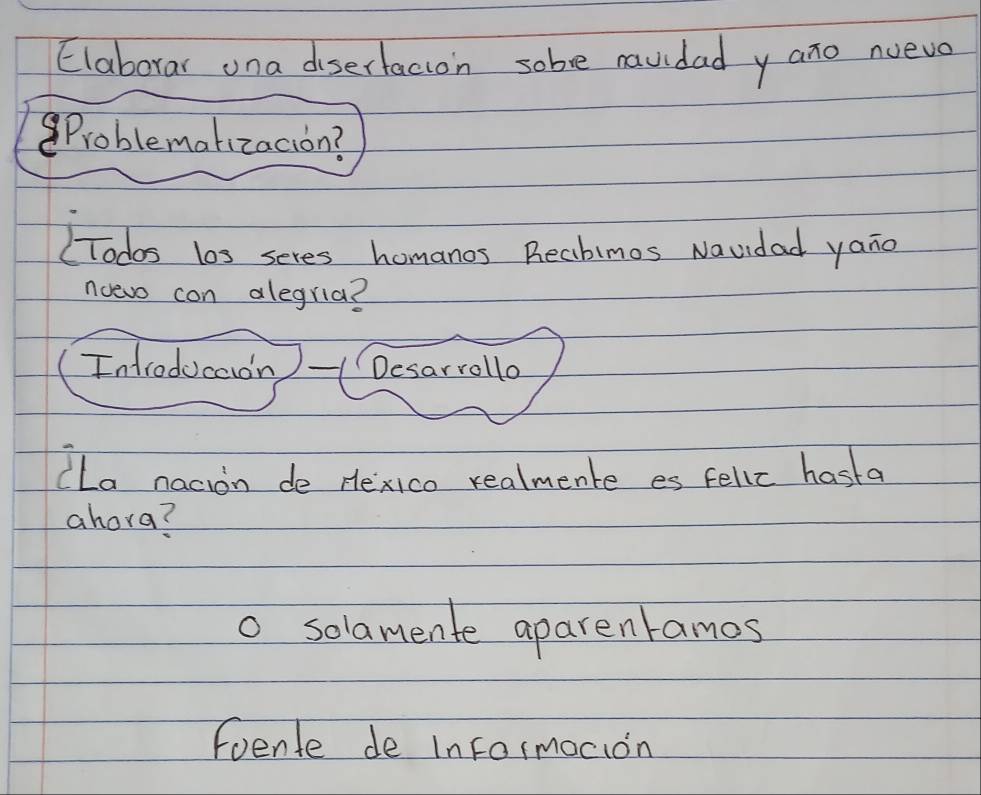 Elaborar una disertación sobre navidad y año nuevo
¿Problematización?
¿Todos los seres humanos Recibimos Navidad y año
nuevo con alegria?
Introducción - Desarrollo
¿La nación de México realmente es feliz hasta
ahora?
O solamente aparentamos
Fuente de Información